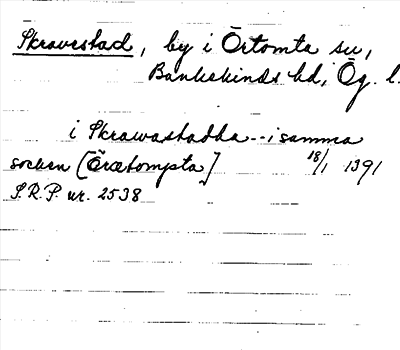 Skravestad, by i Örtomta sn,
Bankekinds hd, Ög. l.
i Skrawastadha - - i samma
socken [Örætompta] 18/1 1391
S.R.P. nr. 2538